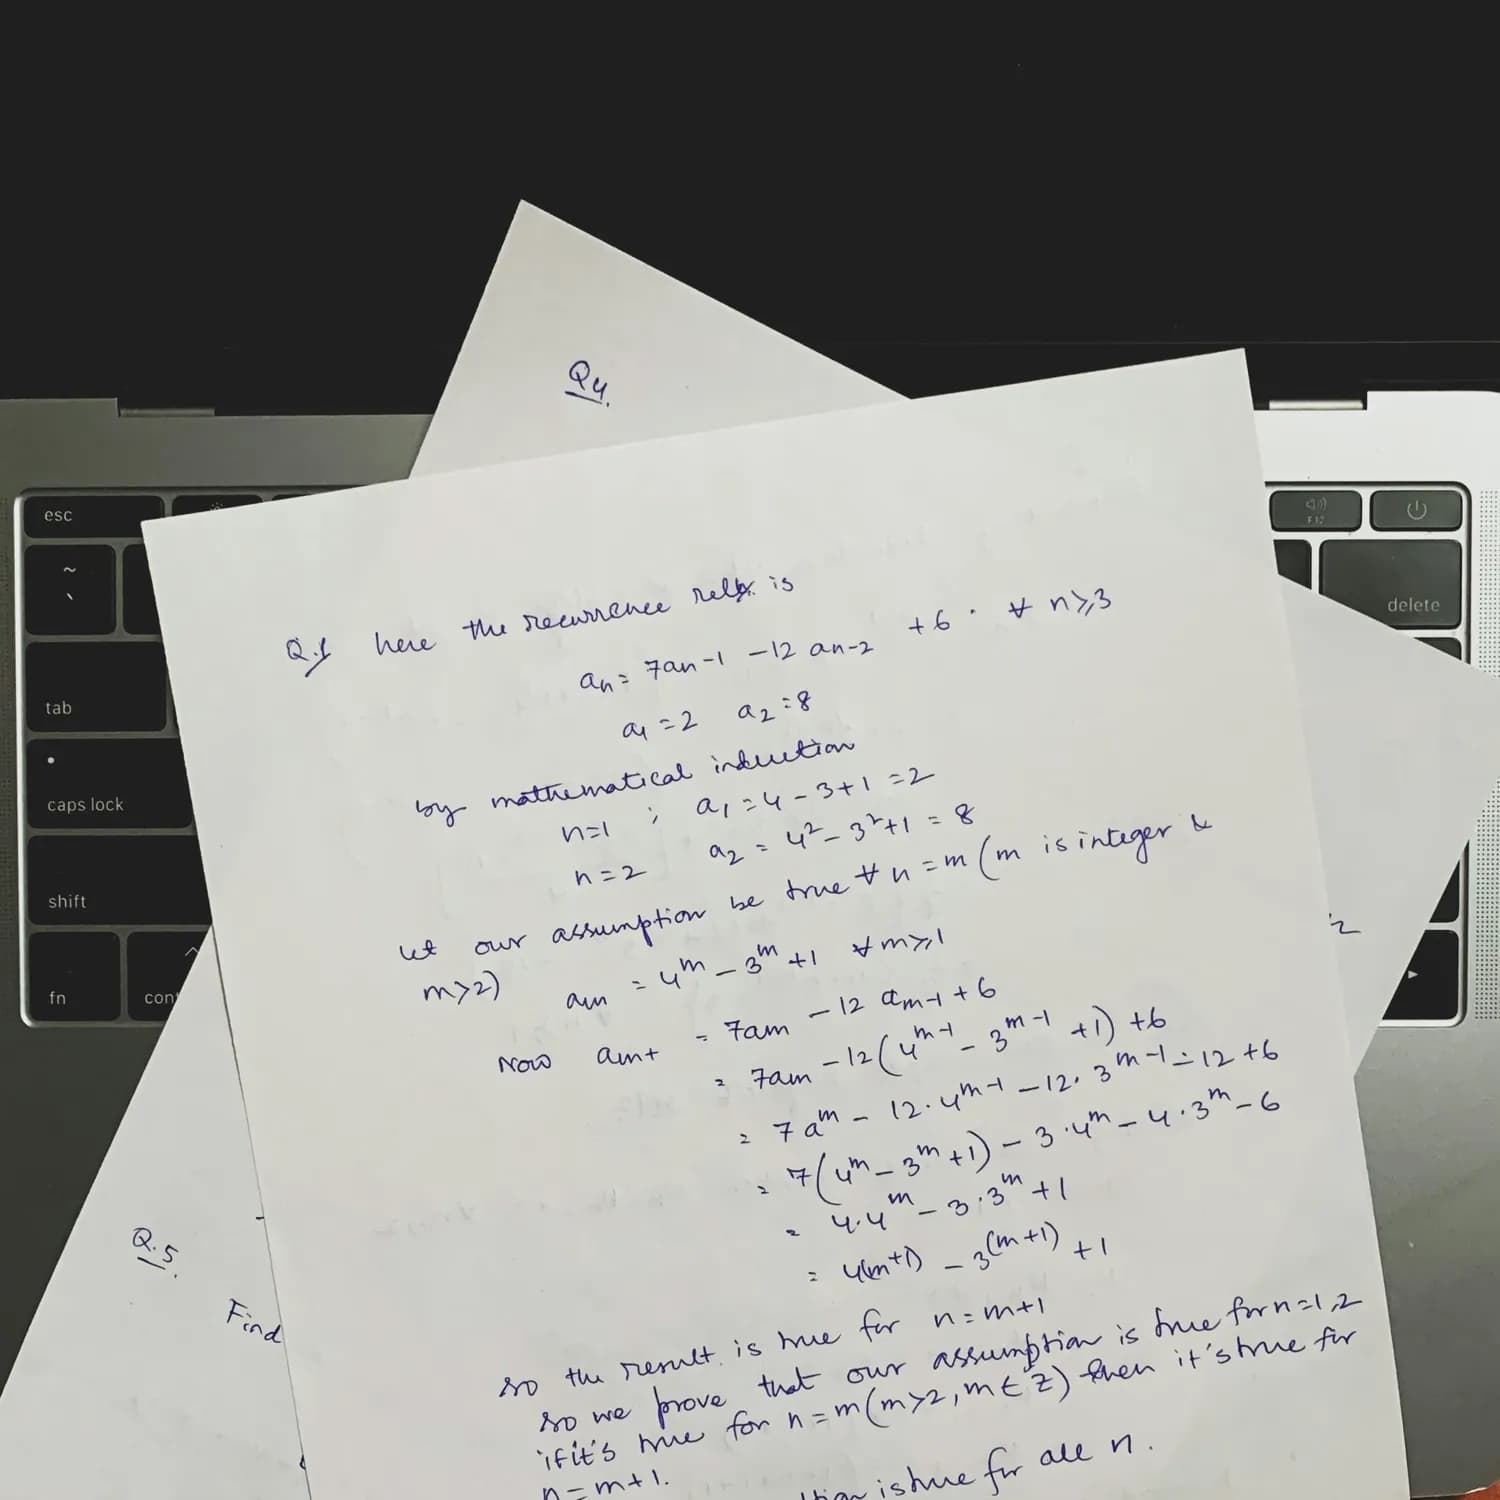 Q4.
esc
F12
~
`
delete
tab
caps lock
shift
fn
Q.1 here the recurrence is
an = 7an-1 -12 an-2 +6 . ∀ n⩾3
a1 = 2 a2 = 8
by mathematical induction
n=1 ; a1 = 4 - 3+1 = 2
n = 2 a2 = 4² - 3²+1 = 8
let our assumption be true ∀ n = m (m is integer &
m>2) am = 4^m - 3^m +1 ∀ m⩾1
Now am+ = 7am - 12 am-1 + 6
= 7am - 12(4^m-1 - 3^m-1 +1) +6
= 7a^m - 12.4^m-1 - 12. 3^m-1 - 12 +6
= 7(4^m - 3^m +1) - 3.4^m - 4.3^m - 6
= 4.4^m - 3.3^m +1
= 4(m+1) - 3^(m+1) +1
so the result. is true for n = m+1
so we prove that our assumption is true for n=1,2
if it's true for n = m (m>2, m ∈ Z) then it's true for
n = m+1.
is true for all n.
2
Q.5.
Find